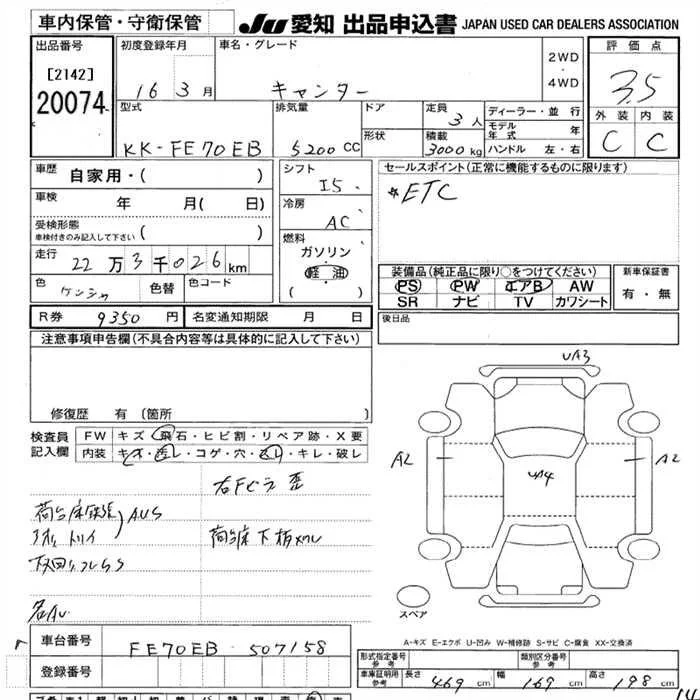 車内保管・守衛保管
JU 愛知 出品申込書 JAPAN USED CAR DEALERS ASSOCIATION
出品番号
[2142]
20074
初度登録年月
16 3月
車名・グレード
キャンター
2WD
・
4WD
評価点
3.5
外装 内装
C C
型式
KK-FE70EB
排気量
5200 CC
ドア
形状
定員
3人
積載
3000kg
ディーラー・並行
モデル年式 年
ハンドル 左・右
車歴
自家用・( )
車検
年 月( 日)
受検形態
車検付きのみ記入して下さい ( )
走行
22万3千026km
色
ケンシャ
色替
色コード
シフト
I5
冷房
AC
燃料
ガソリン
・
軽油
( )
セールスポイント(正常に機能するものに限ります)
*ETC
装備品(純正品に限り○をつけてください)
PS PW エアB AW
SR ナビ TV カワシート
新車保証書
有・無
R券 9350 円
名変通知期限 月 日
後日品
注意事項申告欄(不具合内容等は具体的に記入して下さい)
修復歴 有(箇所 )
検査員
記入欄
FW キズ・飛石・ヒビ割・リペア跡・X要
内装 キズ・汚レ・コゲ・穴・スレ・キレ・破レ
UA3
A2
UA4
A2
スペア
A-キズ E-エクボ U-凹み W-補修跡 S-サビ C-腐食 XX-交換済
車台番号
FE70EB-507158
登録番号
形式指定番号
参考
類別区分番号
参考
車庫証明用
参考
長さ 469 cm
幅 169 cm
高さ 198 cm